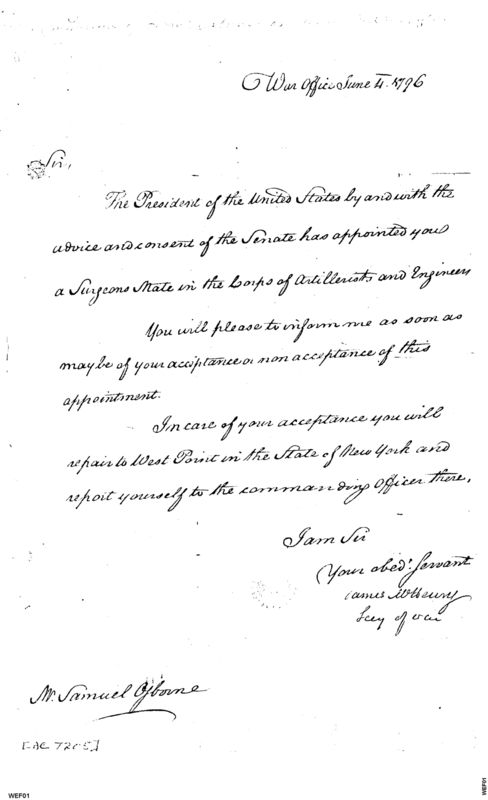 War Office June 4. 1796
Sir,
The President of the United States by and with the
advice and consent of the Senate has appointed you
a Surgeons Mate in the Corps of Artillerists and Engineers
You will please to inform me as soon as
maybe of your acceptance or non acceptance of this
appointment.
In case of your acceptance you will
repair to West Point in the State of New York and
report yourself to the commanding Officer there.
I am Sir
Your obedt. Servant
James McHenry
Secy of war
Mr. Samuel Osborne
WEF01
WEF01